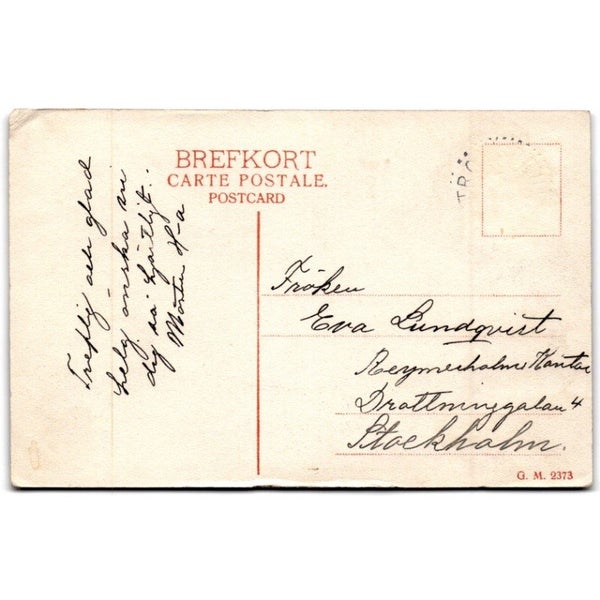 BREFKORT
CARTE POSTALE.
POSTCARD
Treflig och glad
helg önska vi
dig så hjärtligt.
Fröken
Eva Lundqvist
Reymerholms Kontor
Drottninggatan 4
Stockholm.
G. M. 2373